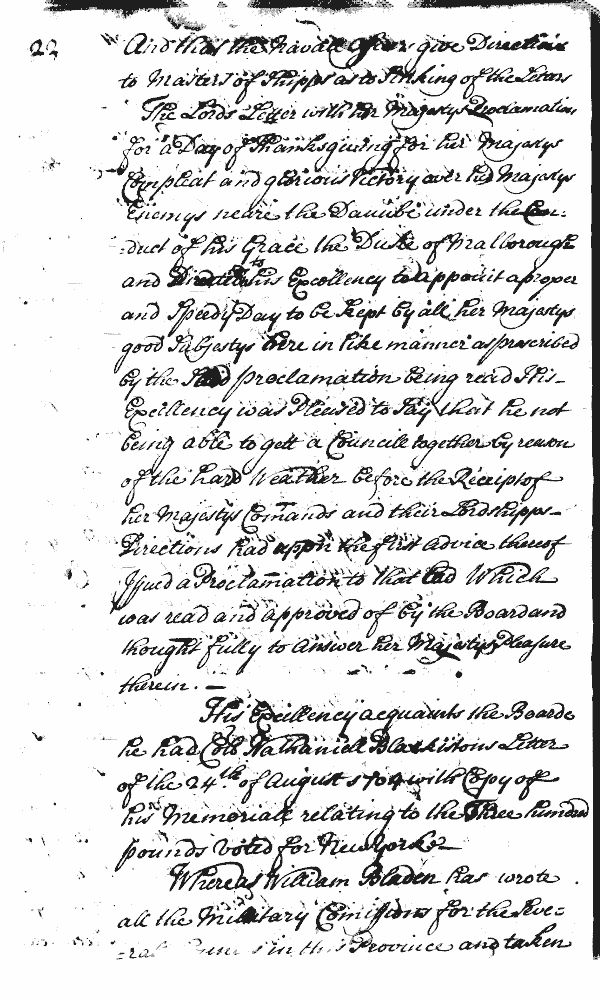 22
And that the Navall officers give Directions
to Masters of Shipps as to Sinking of the Letters
The Lords Letter with her Majestys Proclamation
for a Day of Thanksgiving for her Majestys
Compleat and glorious Victory over her Majestys
Enemys neare the Danube under the Con:
:duct of his Grace the Duke of Malborough
and Directed to his Excellency to appoint a proper
and Speedy Day to be kept by all her Majestys
good Subjects here in like manner as prescribed
by the Said proclamation being read His
Excellency was Pleased to Say that he not
being able to gett a Councill together by reason
of the hard Weather before the Receipt of
her Majestys Comands and their Lordshipps
Directions had uppon the first advice thereof
Issued a Proclamation to that End Which
was read and approved of by the Board and
thought fully to answer her Majestys Pleasure
therein.
His Excellency acquaints the Boarde
he had Coll Nathaniell Blakistons Letter
of the 24th of August 1704 with Copy of
his Memoriall relating to the Three hundred
pounds voted for New Yorke
Whereas William Bladen has wrote
all the Military Comissions for the Seve=
=rall in this Province and taken